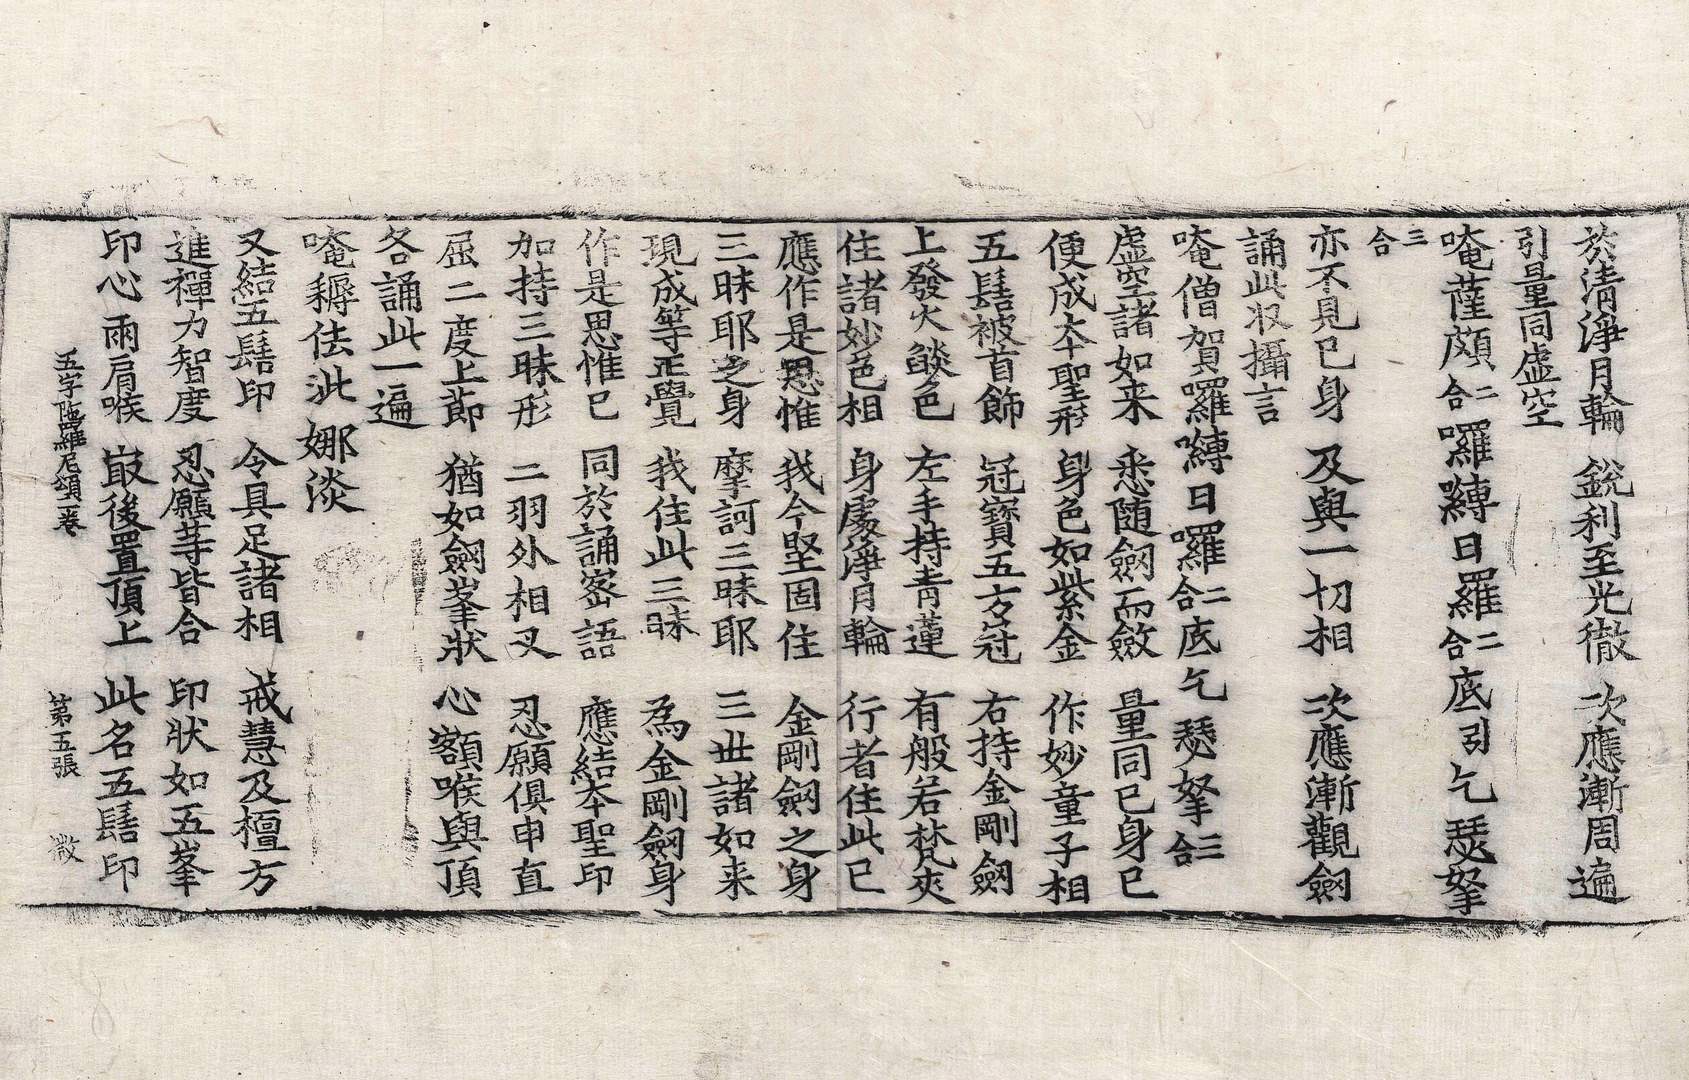 於清淨月輪　銳利至光徹　次應漸周遍
引量同虛空
唵薩頗二合囉嚩日羅二合底引乞瑟拏
三合
亦不見己身　及與一切相　次應漸觀劒
誦此収攝言
唵僧賀囉嚩日囉二合底乞瑟拏三合
虛空諸如来　悉隨劒而斂　量同己身已
便成夲聖形　身色如紫金　作妙童子相
五髻被首飾　冠寶五方冠　右持金剛劒
上發火燄色　左手持青蓮　有般若梵夾
住諸妙色相　身處淨月輪　行者住此已
應作是思惟　我今堅固住　金剛劒之身
三昧耶之身　摩訶三昧耶　三世諸如来
現成等正覺　我住此三昧　為金剛劒身
作是思惟已　同於誦密語　應結夲聖印
加持三昧形　二羽外相叉　忍願俱申直
屈二度上節　猶如劒峯狀　心額喉與頂
各誦此一遍
唵耨佉泚娜淡
又結五髻印　令具足諸相　戒慧及檀方
進禪力智度　忍願等皆合　印狀如五峯
印心兩肩喉　㝡後置頂上　此名五髻印
五字陁羅尼頌一卷　第五張　澂